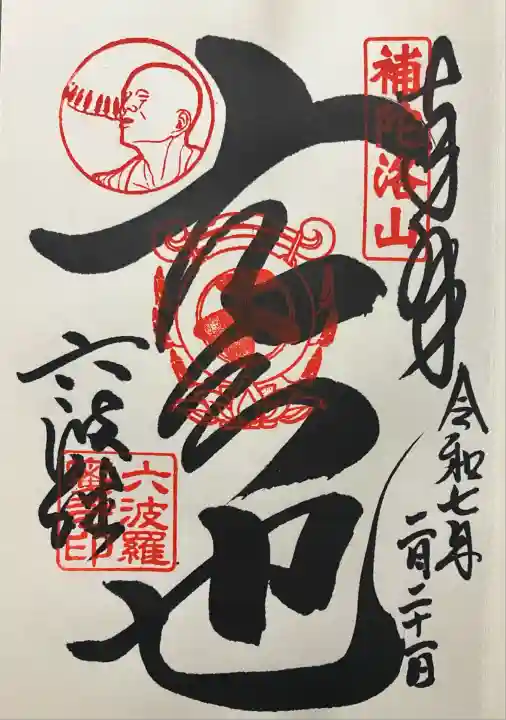 奉拝
補陀洛山
令和七年
二月二十一日
空也
六波
六波羅
蜜寺印